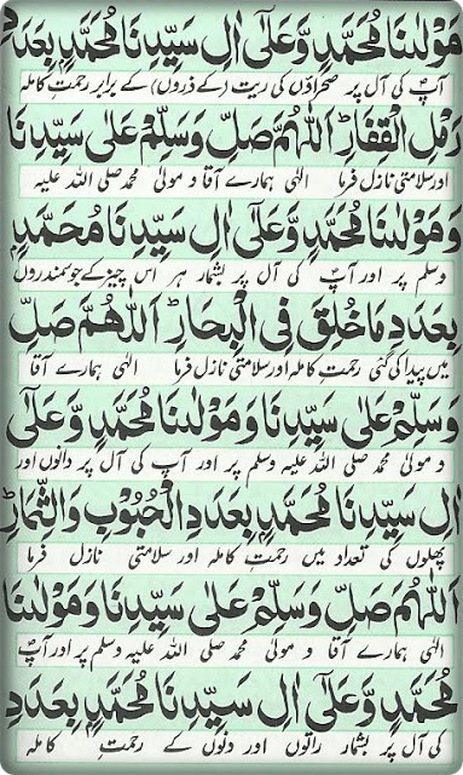 مَوْلٰىنَا مُحَمَّدٍ وَّعَلٰٓى اٰلِ سَيِّدِنَا مُحَمَّدٍۢ بِعَدَدِ
آپؐ کی آل پر صحراؤں کی ریت (کے ذروں) کے برابر رحمتِ کاملہ
رَمْلِ الْقِفَارِؕ اَللّٰهُمَّ صَلِّ وَسَلِّمْ عَلٰى سَيِّدِنَا
اور سلامتی نازل فرما الٰہی ہمارے آقا و مولیٰ محمد صلی اللہ علیہ
وَمَوْلٰىنَا مُحَمَّدٍ وَّعَلٰٓى اٰلِ سَيِّدِنَا مُحَمَّدٍۢ
وسلم پر اور آپؐ کی آل پر بشمار ہر اس چیز کے جو سمندروں
بِعَدَدِ مَا خُلِقَ فِى الْبِحَارِؕ اَللّٰهُمَّ صَلِّ
میں پیدا کی گئی رحمتِ کاملہ اور سلامتی نازل فرما الٰہی ہمارے آقا
وَسَلِّمْ عَلٰى سَيِّدِنَا وَمَوْلٰىنَا مُحَمَّدٍ وَّعَلٰٓى
و مولیٰ محمد صلی اللہ علیہ وسلم پر اور آپ کی آل پر دانوں اور
اٰلِ سَيِّدِنَا مُحَمَّدٍۢ بِعَدَدِ الْحُبُوْبِ وَالثِّمَارِؕ
پھلوں کی تعداد میں رحمتِ کاملہ اور سلامتی نازل فرما
اَللّٰهُمَّ صَلِّ وَسَلِّمْ عَلٰى سَيِّدِنَا وَمَوْلٰىنَا
الٰہی ہمارے آقا و مولیٰ محمد صلی اللہ علیہ وسلم پر اور آپؐ
مُحَمَّدٍ وَّعَلٰٓى اٰلِ سَيِّدِنَا مُحَمَّدٍۢ بِعَدَدِ
کی آل پر بشمار راتوں اور دنوں کے رحمتِ کاملہ